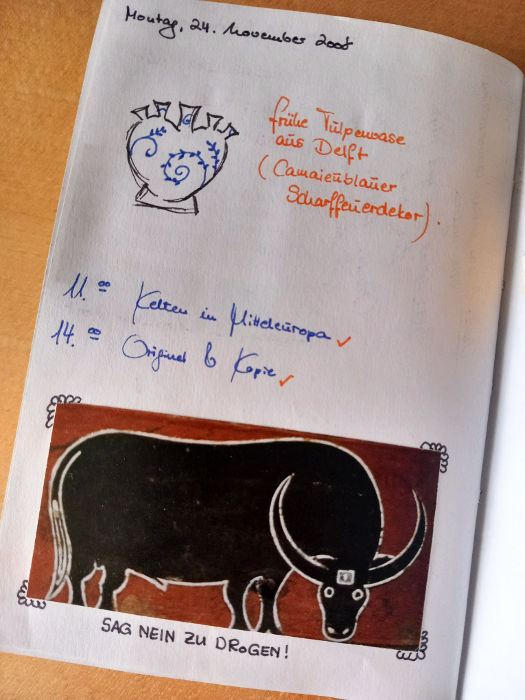 Montag, 24. November 2008
frühe Tulpenvase
aus Delft
(Camaieublauer
Scharffeuerdekor).
11.°° Kelten in Mitteleuropa ✓
14.°° Original & Kopie ✓
SAG NEIN ZU DROGEN!